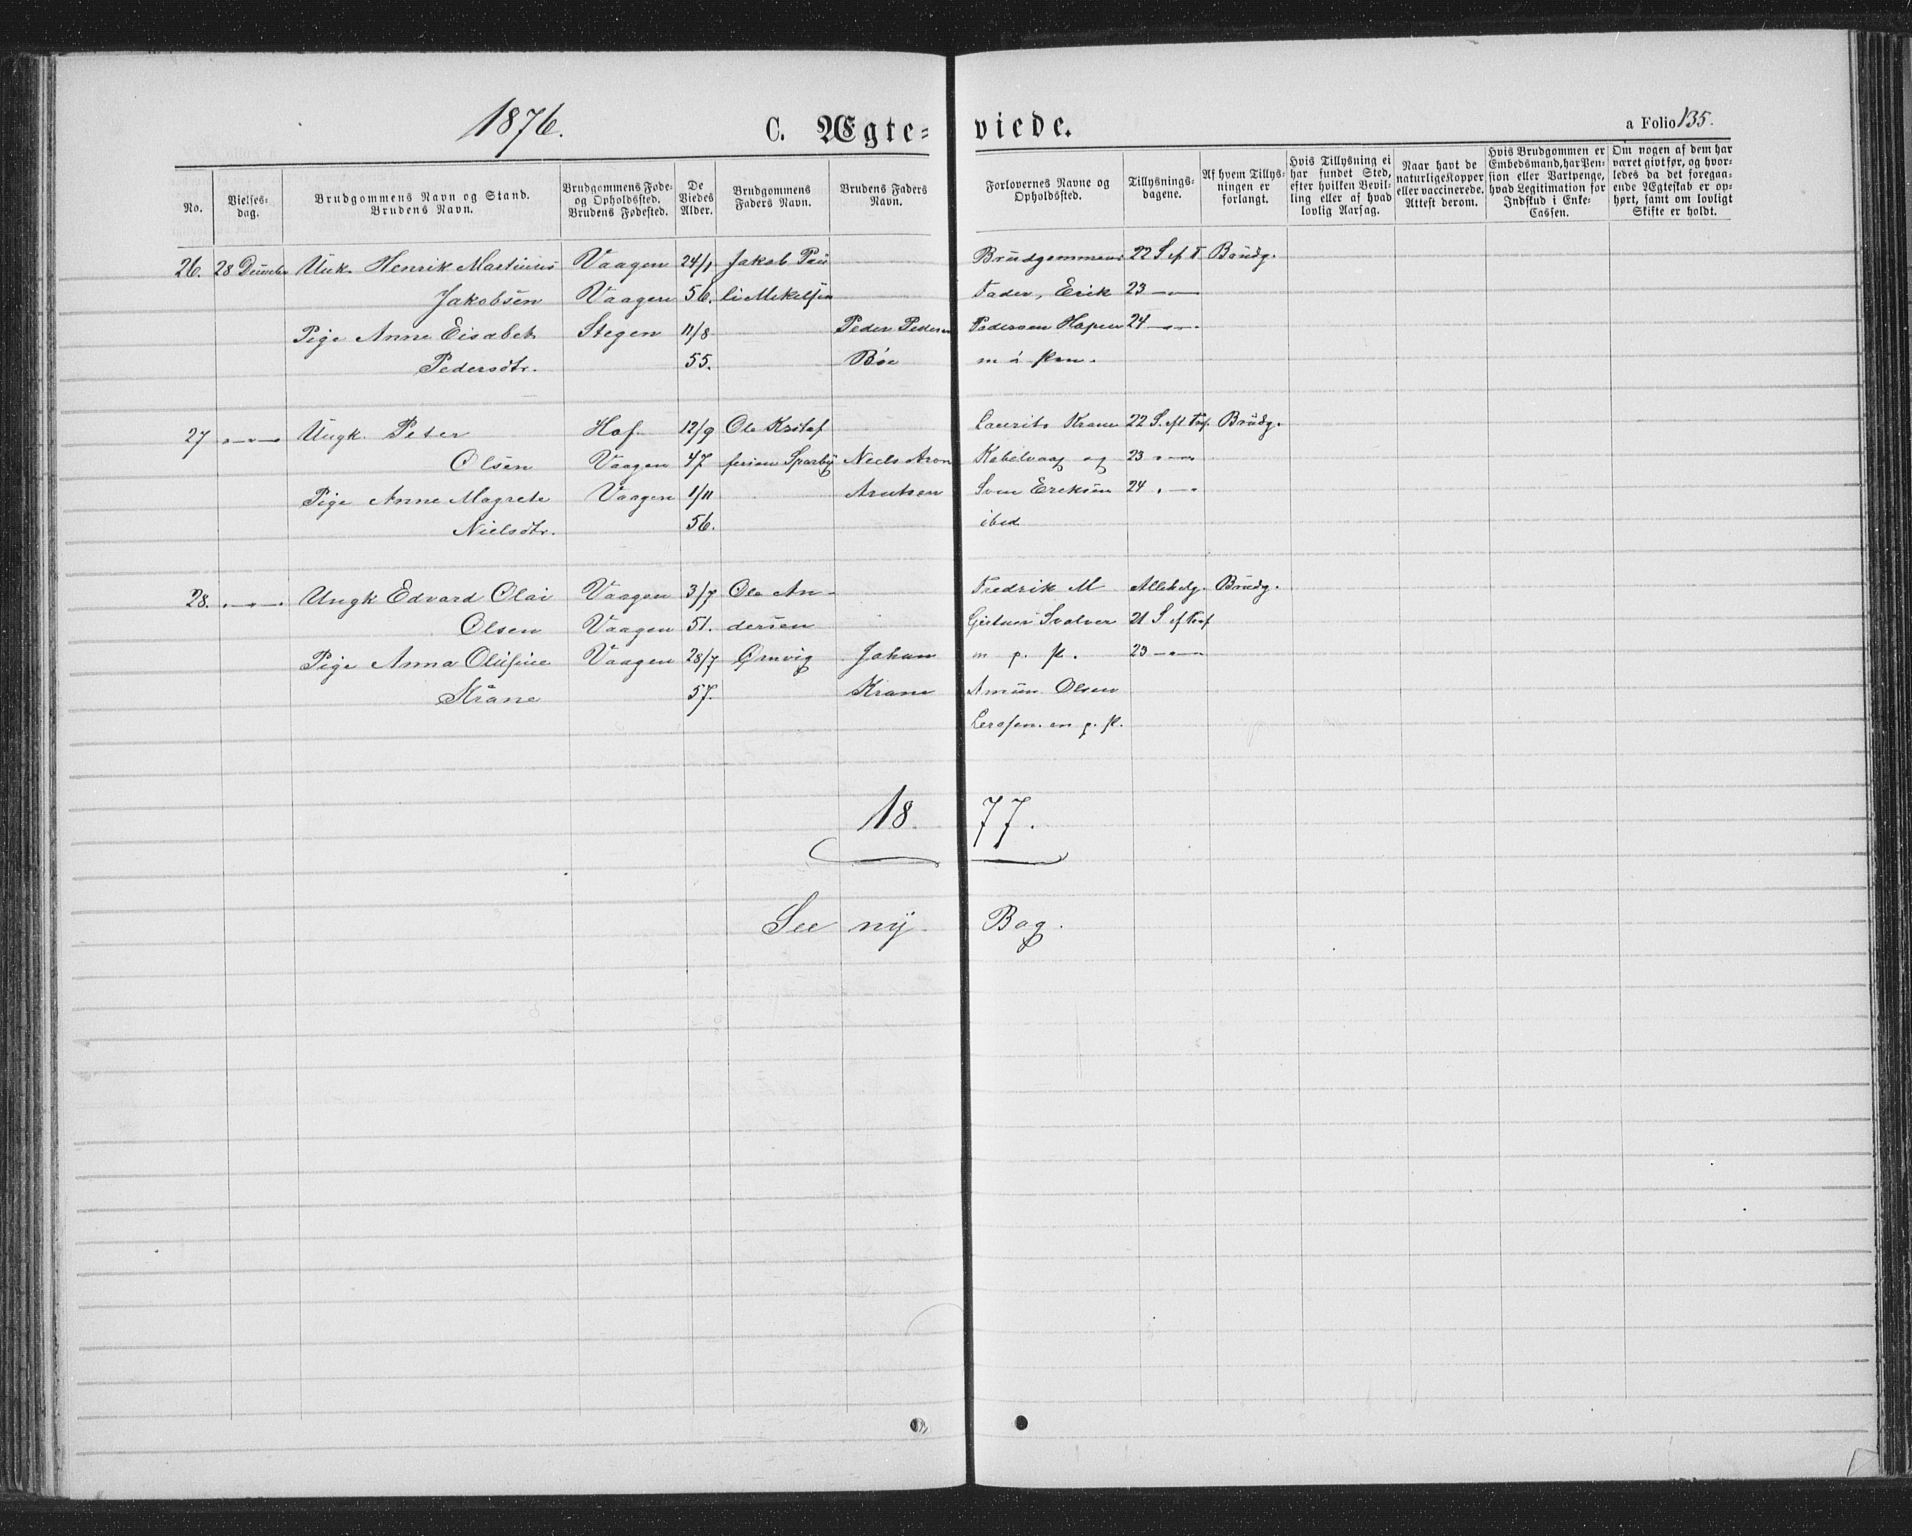 1876.
C. Ægte- viede.
a Folio 135.
No.
Vielses-
dag.
Brudgommens Navn og Stand.
Brudens Navn.
Brudgommens Føde-
og Opholdssted.
Brudens Fødested.
De
Viedes
Alder.
Brudgommens
Faders Navn.
Brudens Faders
Navn.
Forlovernes Navne og
Opholdssted.
Tillysnings-
dagene.
Af hvem Tillys-
ningen er
forlangt.
Hvis Tillysning ei
har fundet Sted,
efter hvilken Bevil-
ling eller af hvad
lovlig Aarsag.
Naar havt de
naturlige Kopper
eller vaccinerede.
Attest derom.
Hvis Brudgommen er
Embedsmand, har Pen-
sion eller Vartpenge,
hvad Legitimation for
Indskud i Enke-
Cassen.
Om nogen af dem har
været gift før, og hvor-
ledes da det foregaa-
ende Ægteskab er op-
hørt, samt om lovligt
Skifte er holdt.
26. 28 December Unk. Henrik Martinus Vaagen 24/1 Jakob Pau Brudgommens 22 S ef T Brudg.
Jakobsen Vaagen 56. li Mekelsen Fader, Erik 23 —„—
Pige Anne Elsabet Stegen 11/8 Peder Peders Pedersen Hopen 24 —„—
Pedersdtr. 55. Bøe
27 „—„— Ungk. Peter Hof 12/9 Ole Kristof Laurits Krane 22 S. eft Tref. Brudg.
Olsen Vaagen 47 fersen Sparby Niels Aron Kabelvaag og 23 „—„
Pige Anne Magrete Vaagen 1/11 Arntsen Sven Eriksen 24 „—„
Nielsdtr. 56. ibid
28. „—„— Ungk Edvard Olai Vaagen 3/7 Ole An- Fredrik M Allehelg. Brudg.
Olsen Vaagen 51. dersen Svolver 21 S ef Tref
Pige Anna Olufine Vaagen 28/7 Ørnvig Johan m p. p. 23 —„—
Krane 57. Krane Olsen
m p. p.
18 77.
See ny Bog.